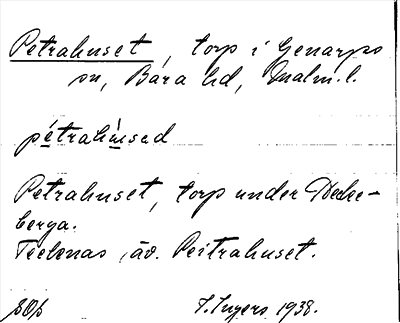 Petrahuset, torp i Genarps
sn, Bara hd, Malm. l.
pétrahùsəd
Petrahuset, torp under Hecke-
berga.
även. Peitrahuset.
I. Ingers 1938.